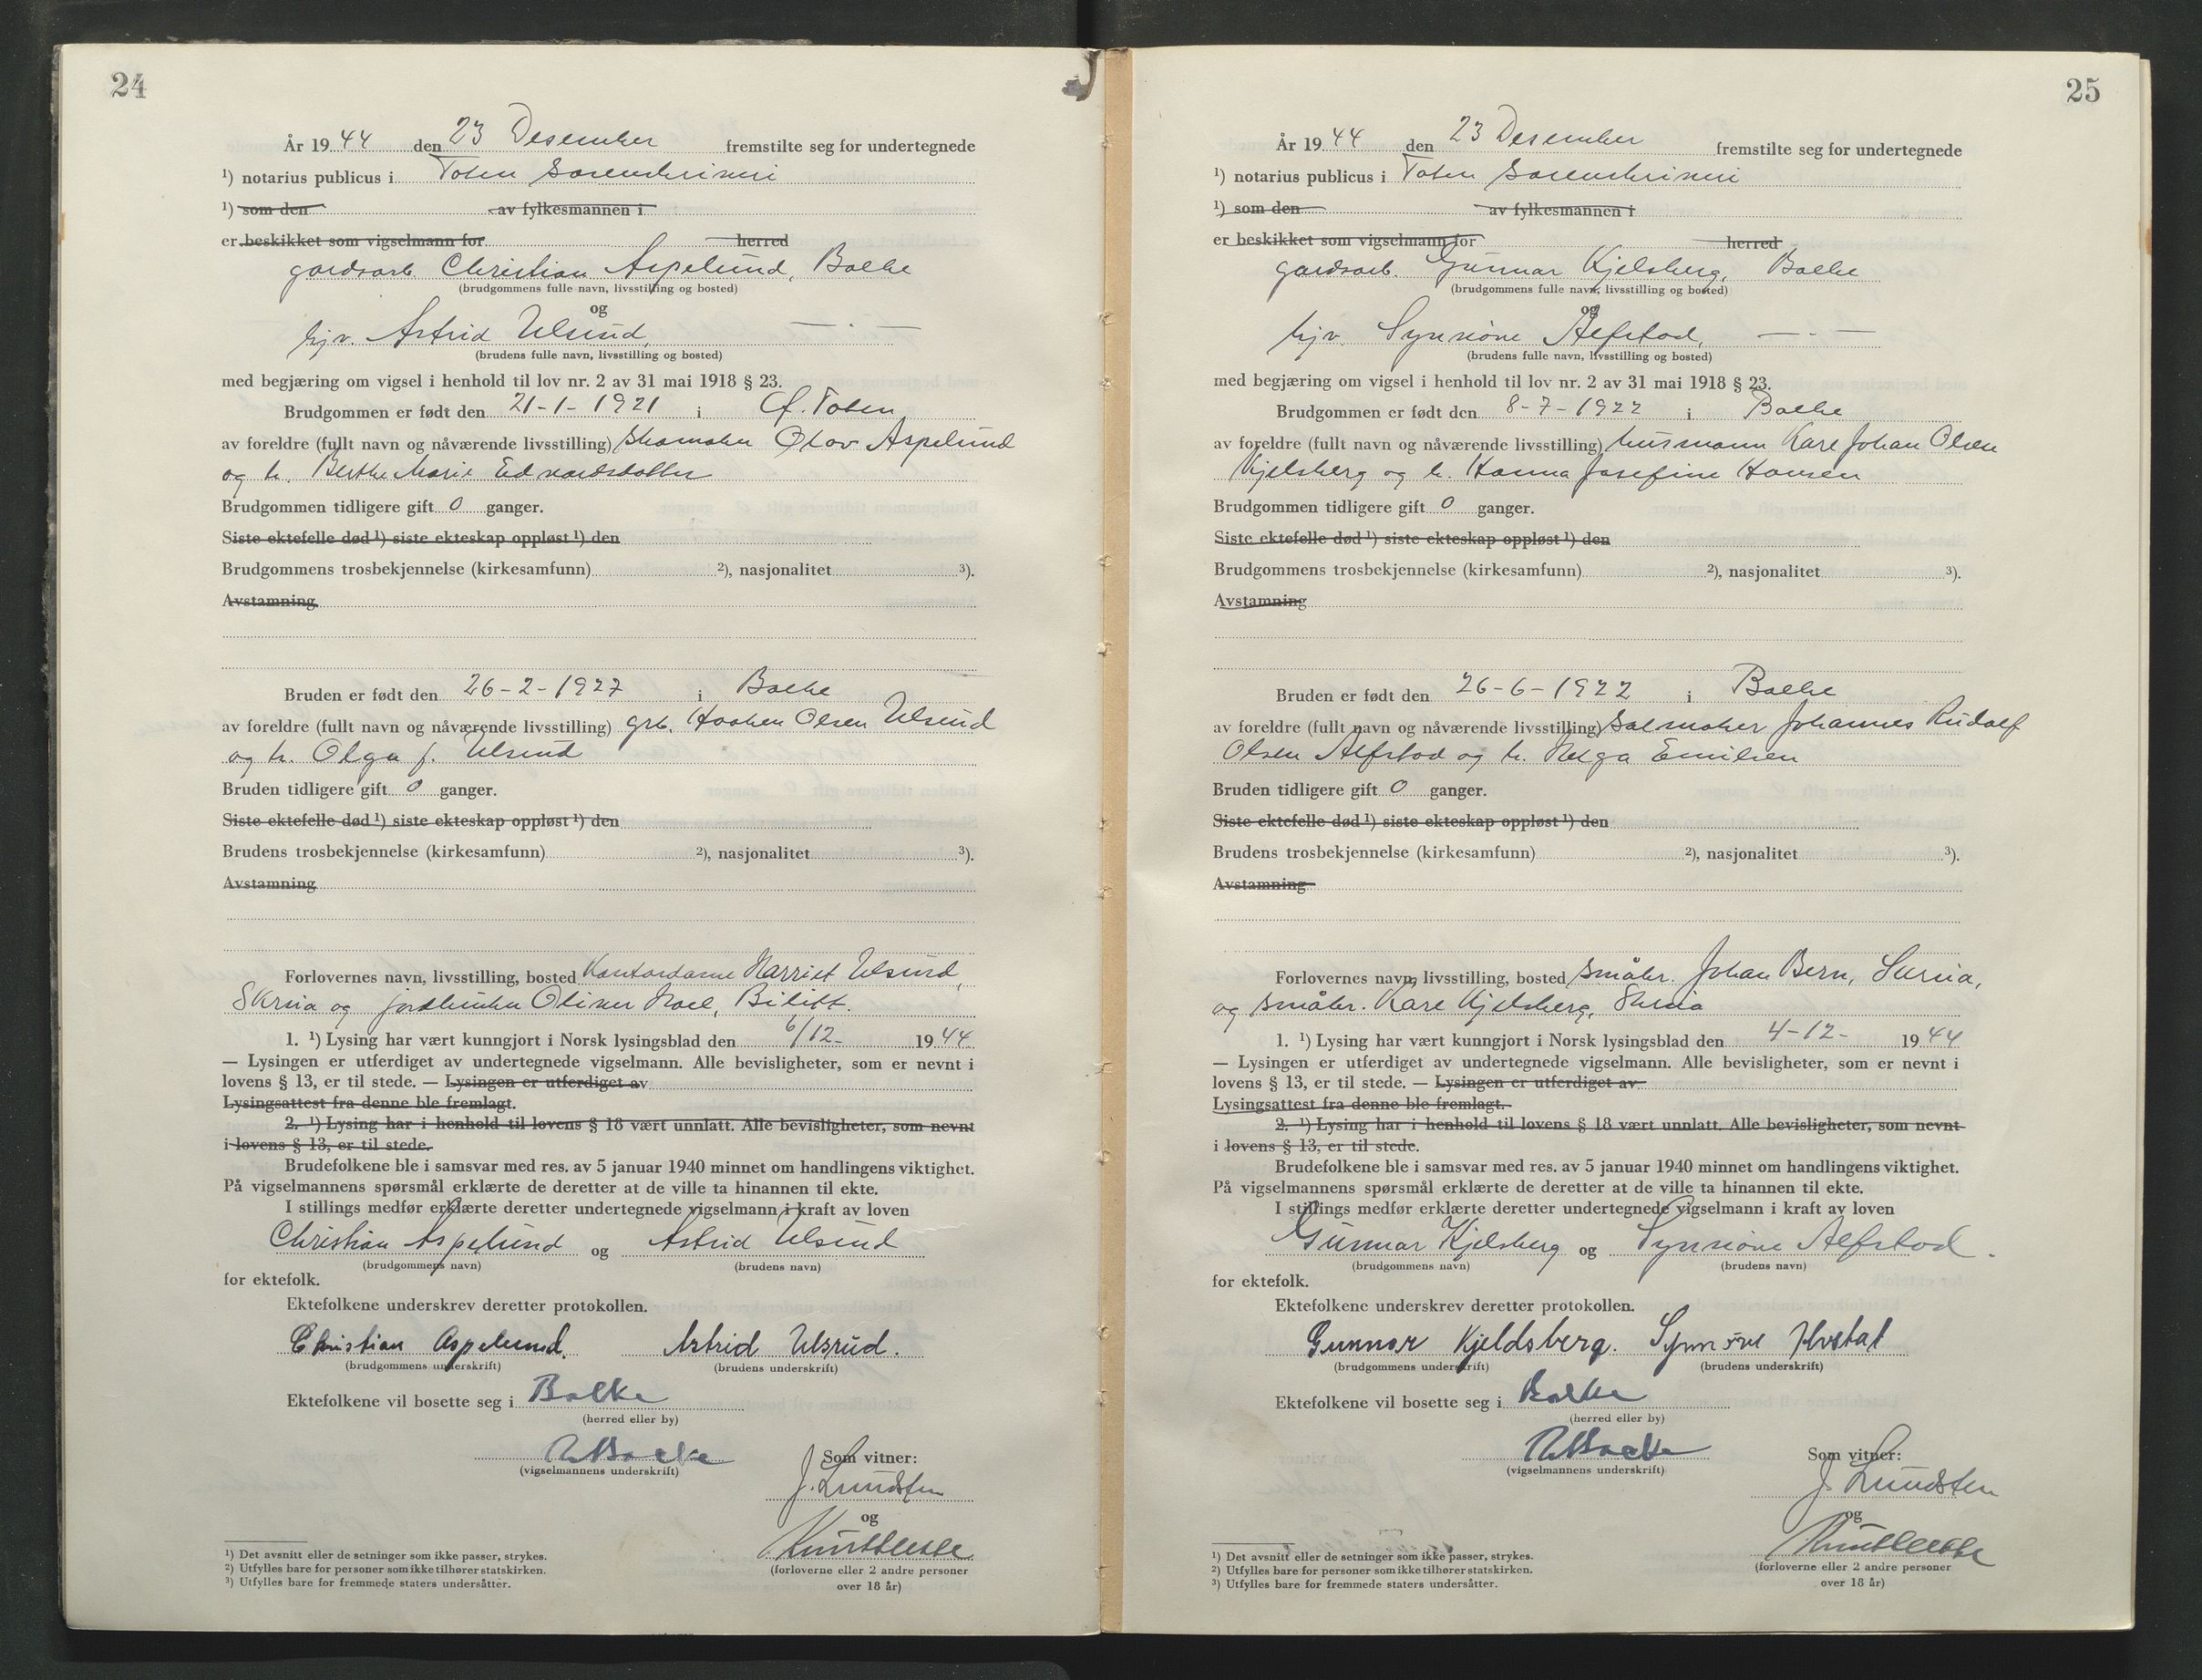 24
År 19 44 den 23 Desember fremstilte seg for undertegnede
¹) notarius publicus i Toten Sorenskriveri
¹) som den av fylkesmannen i
er beskikket som vigselmann for herred
gardsarb. Christian Aspelund, Balke
(brudgommens fulle navn, livsstilling og bosted)
og
hjv. Astrid Ulsrud, — " —
(brudens fulle navn, livsstilling og bosted)
med begjæring om vigsel i henhold til lov nr. 2 av 31 mai 1918 § 23.
Brudgommen er født den 21-1-1921 i Ø. Toten
av foreldre (fullt navn og nåværende livsstilling) skomaker Olav Aspelund
og h. Berthe Marie Edvardsdatter
Brudgommen tidligere gift 0 ganger.
Siste ektefelle død ¹) siste ekteskap oppløst ¹) den
Brudgommens trosbekjennelse (kirkesamfunn) ²), nasjonalitet ³).
Avstamning
Bruden er født den 26-2-1927 i Balke
av foreldre (fullt navn og nåværende livsstilling) grb. Haaken Olsen Ulsrud
og h. Olga f. Ulsrud
Bruden tidligere gift 0 ganger.
Siste ektefelle død ¹) siste ekteskap oppløst ¹) den
Brudens trosbekjennelse (kirkesamfunn) ²), nasjonalitet ³).
Avstamning
Forlovernes navn, livsstilling, bosted Kontordame Harriet Ulsrud,
Skreia og Oliver Hoel, Bilitt.
1. ¹) Lysing har vært kunngjort i Norsk lysingsblad den 6/12- 19 44
— Lysingen er utferdiget av undertegnede vigselmann. Alle bevisligheter, som er nevnt i
lovens § 13, er til stede. — Lysingen er utferdiget av
Lysingsattest fra denne ble fremlagt.
2. ¹) Lysing har i henhold til lovens § 18 vært unnlatt. Alle bevisligheter, som nevnt
i lovens § 13, er til stede.
Brudefolkene ble i samsvar med res. av 5 januar 1940 minnet om handlingens viktighet.
På vigselmannens spørsmål erklærte de deretter at de ville ta hinannen til ekte.
I stillings medfør erklærte deretter undertegnede vigselmann i kraft av loven
Christian Aspelund og Astrid Ulsrud
(brudgommens navn) (brudens navn)
for ektefolk.
Ektefolkene underskrev deretter protokollen.
Christian Aspelund. Astrid Ulsrud.
(brudgommens underskrift) (brudens underskrift)
Ektefolkene vil bosette seg i Balke
(herred eller by)
Som vitner:
(vigselmannens underskrift)
J. Lundsten
og
(forloverne eller 2 andre personer
over 18 år)
¹) Det avsnitt eller de setninger som ikke passer, strykes.
²) Utfylles bare for personer som ikke tilhører statskirken.
³) Utfylles bare for fremmede staters undersåtter.
25
År 19 44 den 23 Desember fremstilte seg for undertegnede
¹) notarius publicus i Toten Sorenskriveri
¹) som den av fylkesmannen i
er beskikket som vigselmann for herred
gardsarb. Gunnar Kjelsberg, Balke
(brudgommens fulle navn, livsstilling og bosted)
og
hjv. Synnöve Alfstad, — " —
(brudens fulle navn, livsstilling og bosted)
med begjæring om vigsel i henhold til lov nr. 2 av 31 mai 1918 § 23.
Brudgommen er født den 8-7-1922 i Balke
av foreldre (fullt navn og nåværende livsstilling) husmann Kare Johan Olsen
Kjelsberg og h. Hanna Josefine Hansen
Brudgommen tidligere gift 0 ganger.
Siste ektefelle død ¹) siste ekteskap oppløst ¹) den
Brudgommens trosbekjennelse (kirkesamfunn) ²), nasjonalitet ³).
Avstamning
Bruden er født den 26-6-1922 i Balke
av foreldre (fullt navn og nåværende livsstilling) salmaker Johannes Rudolf
Olsen Alfstad og h. Helga Emilsen
Bruden tidligere gift 0 ganger.
Siste ektefelle død ¹) siste ekteskap oppløst ¹) den
Brudens trosbekjennelse (kirkesamfunn) ²), nasjonalitet ³).
Avstamning
Forlovernes navn, livsstilling, bosted småbr. Johan Bern,
og småbr. Kare Kjelsberg, Skreia
1. ¹) Lysing har vært kunngjort i Norsk lysingsblad den 4-12- 19 44
— Lysingen er utferdiget av undertegnede vigselmann. Alle bevisligheter, som er nevnt i
lovens § 13, er til stede. — Lysingen er utferdiget av
Lysingsattest fra denne ble fremlagt.
2. ¹) Lysing har i henhold til lovens § 18 vært unnlatt. Alle bevisligheter, som nevnt
i lovens § 13, er til stede.
Brudefolkene ble i samsvar med res. av 5 januar 1940 minnet om handlingens viktighet.
På vigselmannens spørsmål erklærte de deretter at de ville ta hinannen til ekte.
I stillings medfør erklærte deretter undertegnede vigselmann i kraft av loven
Gunnar Kjelsberg og Synnöve Alfstad.
(brudgommens navn) (brudens navn)
for ektefolk.
Ektefolkene underskrev deretter protokollen.
Gunnar Kjeldsberg. Synnöve
(brudgommens underskrift) (brudens underskrift)
Ektefolkene vil bosette seg i Balke
(herred eller by)
Som vitner:
(vigselmannens underskrift)
J. Lundsten
og
(forloverne eller 2 andre personer
over 18 år)
¹) Det avsnitt eller de setninger som ikke passer, strykes.
²) Utfylles bare for personer som ikke tilhører statskirken.
³) Utfylles bare for fremmede staters undersåtter.